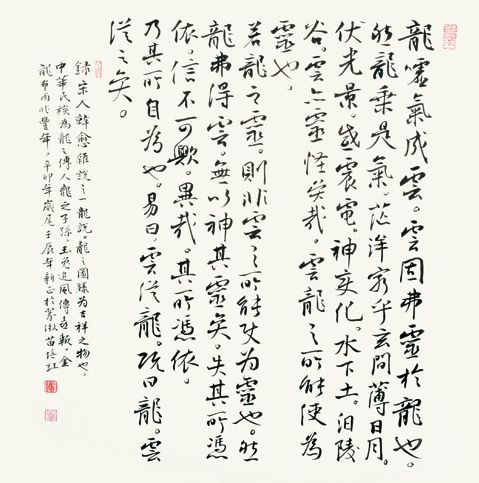 龍噓氣成雲。雲固弗靈於龍也。
然龍乘是氣。茫洋窮乎玄間薄日月。
伏光景。感震電。神變化。水下土。汩陵
谷。雲亦靈怪矣哉。雲龍之所能使為
靈也。
若龍之靈。則非雲之所能使為靈也。然
龍弗得雲。無以神其靈矣。失其所憑
依。信不可歟。異哉。其所憑依。
乃其所自為也。易曰。雲從龍。既曰龍。雲
從之矣。
録宋人韓愈雜說之一龍說。龍之圖騰為吉祥之物也。
中華民族為龍之傳人龍之子孫。玉兔追風傳喜報。金
龍布雨兆豐年。辛卯年歲尾壬辰年新正於 苗培紅